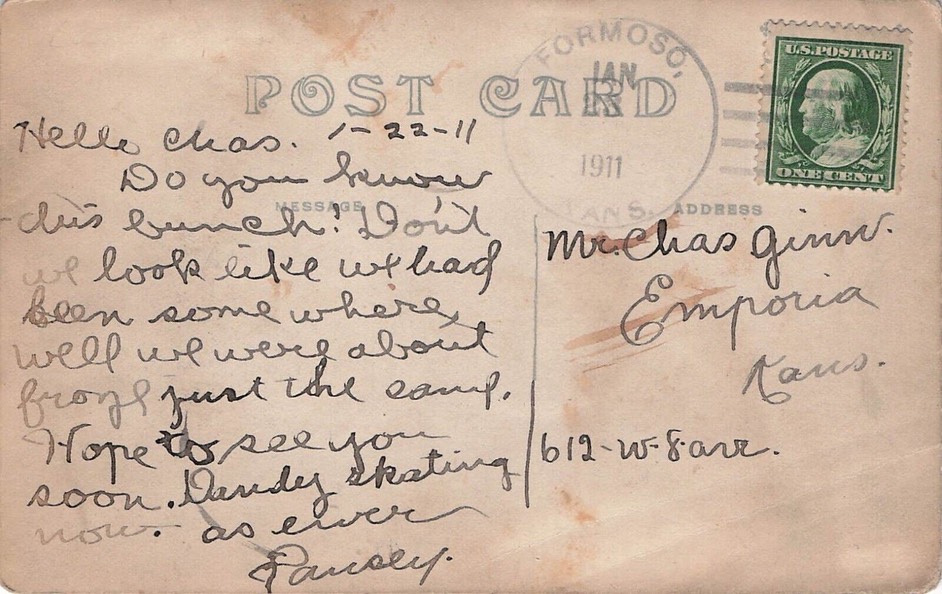 FORMOSO,
JAN
1911
KANS.
U.S. POSTAGE
ONE CENT
POST CARD
MESSAGE
ADDRESS
Hello Chas. 1-22-11
Do you know
this bunch! Don't
we look like we had
been some where,
well we were about
froze just the same.
Hope to see you
soon. Dandy skating
now. as ever
Pansey.
Mr. Chas Ginn.
Emporia
Kans.
612-W-8-ave.